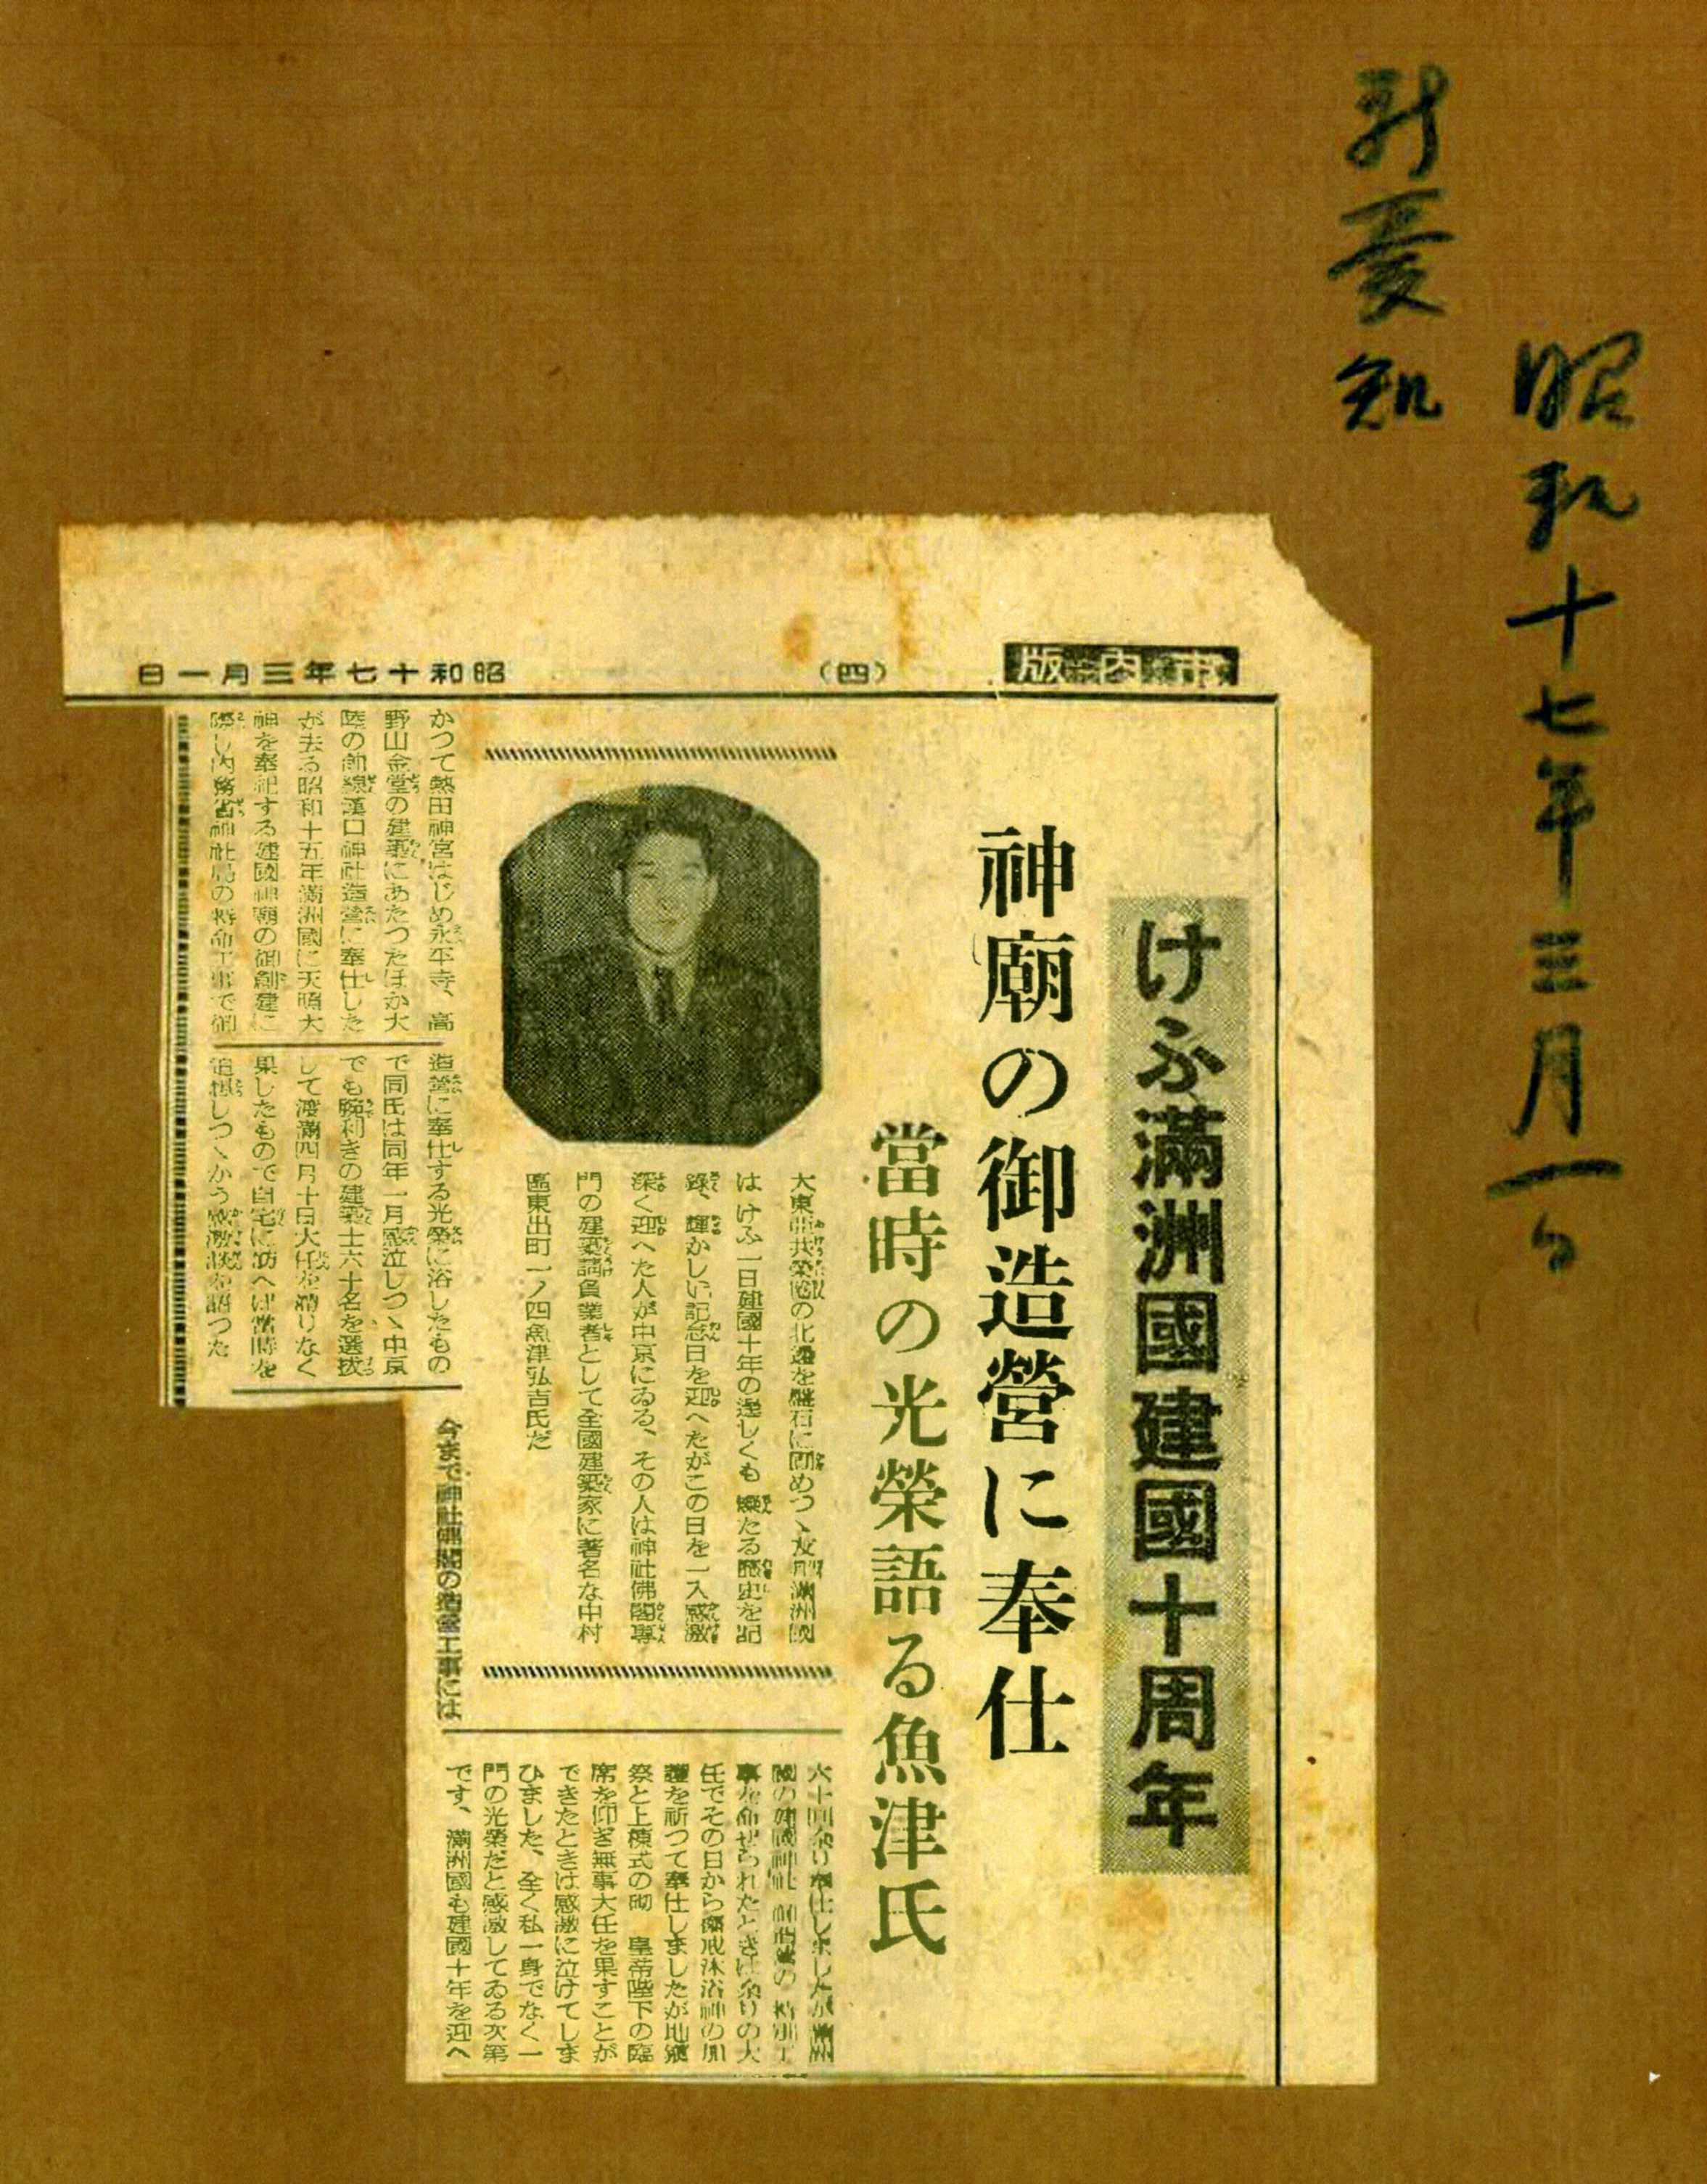 昭和十七年三月一日
新愛知
市内版
（四）
昭和十七年三月一日
けふ滿洲國建國十周年
神廟の御造營に奉仕
當時の光榮語る魚津氏
大東亞共榮圈の北邊を盤石に固めつゝ友邦滿洲國
は けふ一日建國十年の逞しくも 燦たる歷史を記
錄、輝かしい記念日を迎へたがこの日を一入感激
深く迎へた人が中京にゐる、その人は神社佛閣專
門の建築請負業者として全國建築家に著名な中村
區東出町一ノ四魚津弘吉氏だ
かつて熱田神宮はじめ永平寺、高
野山金堂の建築にあたつたほか大
陸の前線漢口神社造營に奉仕した
が去る昭和十五年滿洲國に天照大
神を奉祀する建國神廟の御創建に
際し內務省神社局の特命工事で御
造營に奉仕する光榮に浴したもの
で同氏は同年一月感泣しつゝ中京
でも腕利きの建築士六十名を選拔
して渡滿四月十日大任を滯りなく
果したもので自宅に訪へば當時を
追想しつゝかう感激談を語つた
今まで神社佛閣の造營工事には
六十回余り奉仕しましたが滿洲
國の建國神社 御造營の 特別工
事を命ぜられたときは余りの大
任でその日から齋戒沐浴神の加
護を祈つて奉仕しましたが地鎭
祭と上棟式の砌 皇帝陛下の臨
席を仰ぎ無事大任を果すことが
できたときは感激に泣けてしま
ひました、全く私一身でなく一
門の光榮だと感激してゐる次第
です、滿洲國も建國十年を迎へ